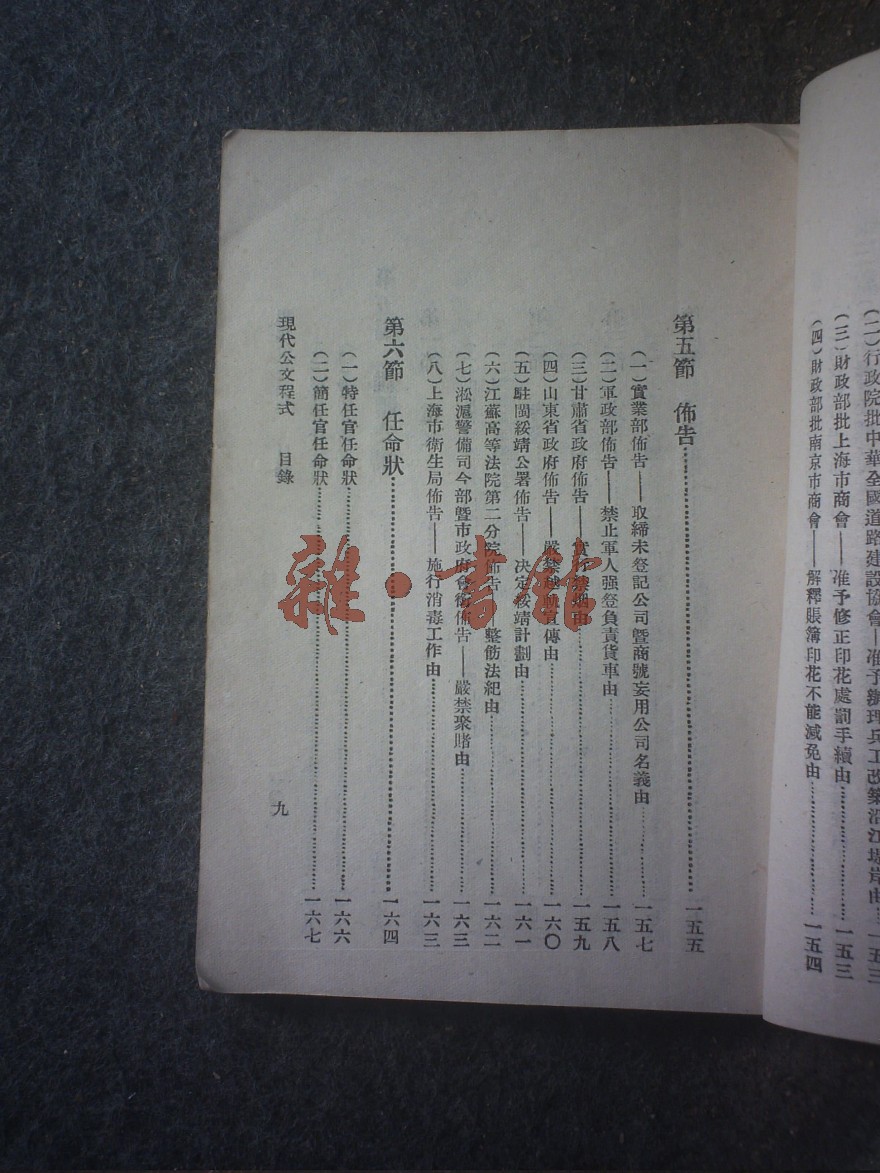 (二)行政院批中華全國道路建設協會——准予辦理兵工改築沿江堤岸由……一五三
(三)財政部批上海市商會——准予修正印花處罰手續由……一五三
(四)財政部批南京市商會——解釋賬簿印花不能減免由……一五四
第五節　佈告……一五五
(一)實業部佈告——取締未登記公司暨商號妄用公司名義由……一五七
(二)軍政部佈告——禁止軍人强登負責貨車由……一五八
(三)甘肅省政府佈告——實行禁烟由……一五九
(四)山東省政府佈告——嚴禁越軌宣傳由……一六〇
(五)駐閩綏靖公署佈告——決定綏靖計劃由……一六一
(六)江蘇高等法院第二分院佈告——整飭法紀由……一六二
(七)淞滬警備司令部暨市政府會銜佈告——嚴禁聚賭由……一六三
(八)上海市衛生局佈告——施行消毒工作由……一六三
第六節　任命狀……一六四
(一)特任官任命狀……一六六
(二)簡任官任命狀……一六七
現代公文程式　目錄　九
雜·書館